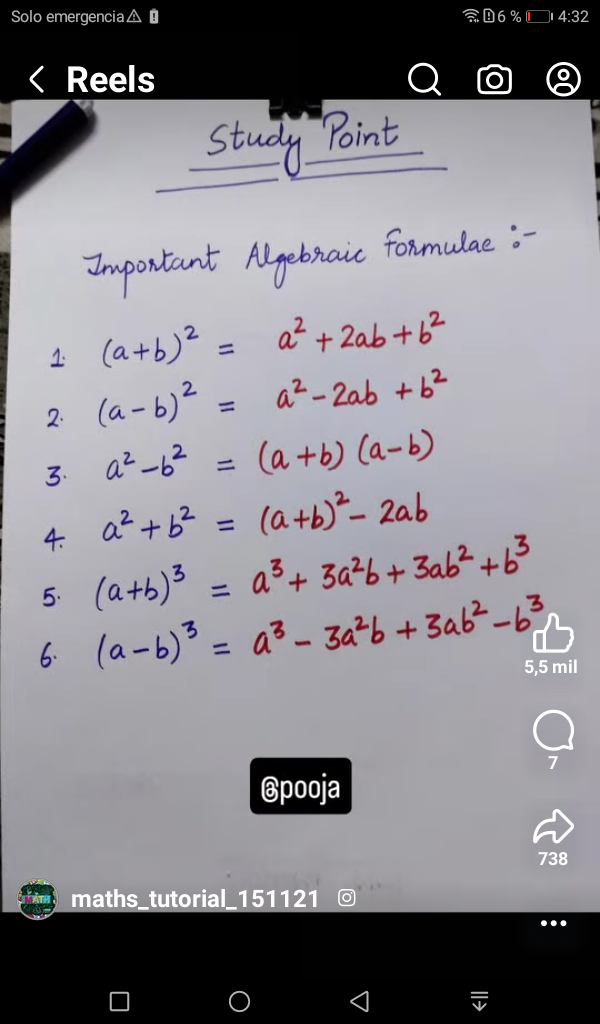 Solo emergencia
6 % 4:32
Reels
Study Point
Important Algebraic Formulae :-
1. (a+b)² = a² + 2ab + b²
2. (a-b)² = a² - 2ab + b²
3. a² - b² = (a+b) (a-b)
4. a² + b² = (a+b)² - 2ab
5. (a+b)³ = a³ + 3a²b + 3ab² + b³
6. (a-b)³ = a³ - 3a²b + 3ab² - b³
5,5 mil
7
@pooja
738
MATH
maths_tutorial_151121